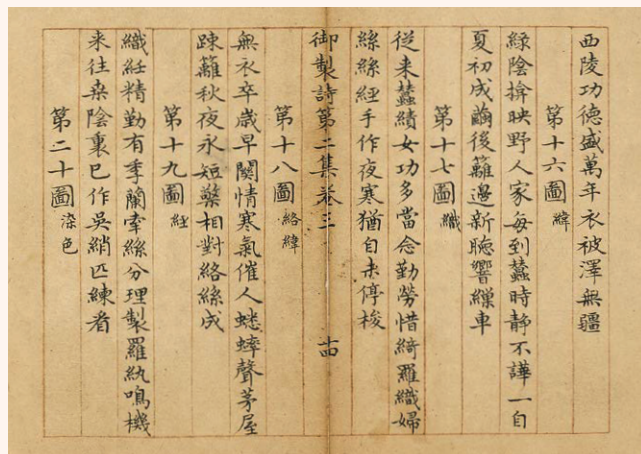 西陵功德盛萬年衣被澤無疆
第十六圖 緯
緑陰揜映野人家每到蠶時静不譁一自
夏初成繭後籬邊新聽響繅車
第十七圖 織
従来蠶績女功多當念勤勞惜綺羅織婦
絲絲經手作夜寒猶自未停梭
御製詩第二集卷三 十四
第十八圖 絡緯
無衣卒歲早關情寒氣催人蟋蟀聲茅屋
踈籬秋夜永短檠相對絡絲成
第十九圖 経
織紝精勤有季蘭牽絲分理製羅紈鳴機
来往桒陰裏已作吳綃匹練看
第二十圖 染色